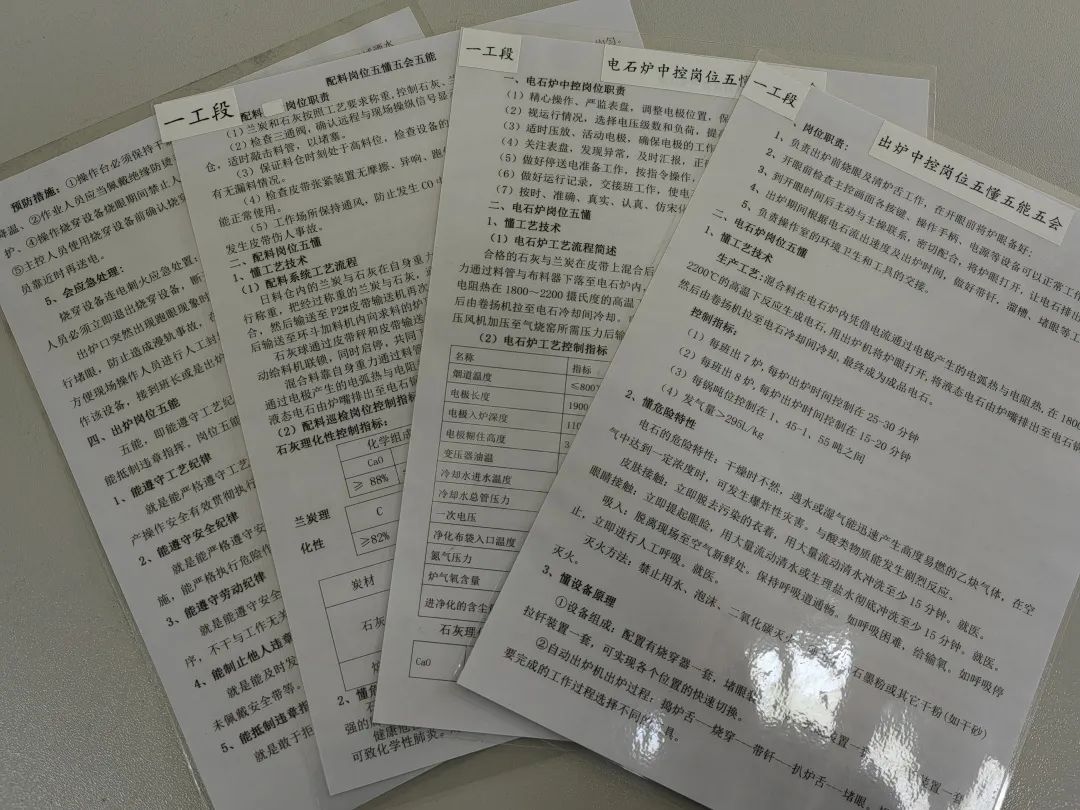 预防措施：①操作台必须保持干
②作业人员应当佩戴绝缘防
护、④操作烧穿设备烧眼期间禁止人
⑤主控人员使用烧穿设备前确认烧穿
员靠近时再送电。
5、会应急处理：
烧穿设备连电刺火应急处置
人员必须立即退出烧穿设备，断
出炉口突然出现跑眼现象时
行堵眼，防止造成漫轨事故，在
方便现场操作人员进行人工封
作该设备，接到班长或能出炉
四、出炉岗位五能
五能，即能遵守工艺纪
能抵制违章指挥。岗位五能
1、能遵守工艺纪律
就是能严格遵守工艺
产操作安全有效贯彻执行
2、能遵守安全纪律
就是能严格遵守安
施，能严格执行危险作
3、能遵守劳动纪律
就是能遵守安全
序，不干与工作无关
4、能制止他人违章
就是能及时发
未佩戴安全带等。
5、能抵制违章指
就是敢于拒
一工段
配料岗位五懂五会五能
配料 岗位职责
（1）兰炭和石灰按照工艺要求称重，控制石灰、
（2）检查三通阀，确认远程与现场操纵信号显
仓，适时敲击料管，以堵塞。
（3）保证料仓时刻处于高料位，检查设备的
有无漏料情况。
（4）检查皮带张紧装置无摩擦、异响、跑
能正常使用。
（5）工作场所保持通风，防止发生CO中
发生皮带伤人事故。
二、配料岗位五懂
1、懂工艺技术
（1）配料系统工艺流程
日料仓内的兰炭与石灰在自身重力
行称重，把经过称重的兰炭与石灰，
合，然后输送至P2#皮带输送机再次
后输送至环斗加料机内问求料的炉
石灰球通过皮带秤和皮带输送
动给料机联锁，同时启停，共同
混合料靠自身重力通过料管
通过电极产生的电弧热与电阻
液态电石由炉嘴排出至电石锅
（2）配料巡检岗位控制指标
石灰理化性控制指标：
化学组成
CaO
≥ 88%
兰炭理
化性
C
≥82%
炭材
石灰
2、懂危
强的
健康危
可致化学性肺炎。
一工段
电石炉中控岗位五懂
一、电石炉中控岗位职责
（1）精心操作、严监表盘，调整电极位置，保
（2）视运行情况，选择电压级数和负荷，提高
（3）适时压放、活动电极、确保电极的工作
（4）关注表盘，发现异常，及时汇报，正确
（5）做好停送电准备工作，按指令操作，
（6）做好运行记录，交接班工作，使电
（7）按时、准确、真实、认真、仿宋体
二、电石炉岗位五懂
1、懂工艺技术
（1）电石炉工艺流程简述
合格的石灰与兰炭在皮带上混合后
力通过料管与布料器下落至电石炉内，
电阻热在1800～2200摄氏度的高温下
后由卷扬机拉至电石冷却间冷却。
压风机加压至气烧窑所需压力后输
（2）电石炉工艺控制指标
名称 指标
烟道温度 ≤800
电极长度 1900
电极入炉深度 110
电极糊住高度 3
变压器油温
冷却水进水温度
冷却水总管压力
一次电压
净化布袋入口温度
氮气压力
炉气氧含量
进净化的含尘
石灰理
CaO
一工段
出炉中控岗位五懂五能五会
、岗位职责：
1、负责出炉前烧眼及清炉舌工作，在开眼前将炉眼备好；
2、开眼前检查主控画面各按键、操作手柄、电源等设备可以正常工作
3、到开眼时间后主动与主操联系，密切配合，将炉眼打开，让电石排出
4、出炉期间根据电石流出速度及出炉时间，做好带钎，溜槽、堵眼等工
5、负责操作室的环境卫生和工具的交接。
二、电石炉岗位五懂
1、懂工艺技术
生产工艺：混合料在电石炉内凭借电流通过电极产生的电弧热与电阻热，在1800
2200℃的高温下反应生成电石，用出炉机将炉眼打开，将液态电石由炉嘴排出至电石锅
然后由卷扬机拉至电石冷却间冷却，最终成为成品电石。
控制指标：
（1）每班出7炉，每炉出炉时间控制在25-30分钟
（2）每班出8炉，每炉出炉时间控制在15-20分钟
（3）每锅吨位控制在1、45-1、55吨之间
（4）发气量＞295L/kg
2、懂危险特性
电石的危险特性：干燥时不然，遇水或湿气能迅速产生高度易燃的乙炔气体，在空
气中达到一定浓度时，可发生爆炸性灾害。与酸类物质能发生剧烈反应。
皮肤接触：立即脱去污染的衣着，用大量流动清水冲洗至少15分钟。就医。
眼睛接触：立即提起眼睑，用大量流动清水或生理盐水彻底冲洗至少15分钟。就医。
吸入：脱离现场至空气新鲜处。保持呼吸道通畅。如呼吸困难，给输氧。如呼吸停
止，立即进行人工呼吸。就医。
灭火方法：禁止用水、泡沫、二氧化碳灭 石墨粉或其它干粉（如干砂）
灭火。
3、懂设备原理
①设备组成：配置有烧穿器一套，堵眼 装置一套 装置一套
拉钎装置一套，可实现各个位置的快速切换。
②自动出炉机出炉过程：捣炉舌---烧穿---带钎---扒炉舌---堵眼。
要完成的工作过程选择不同的 具。